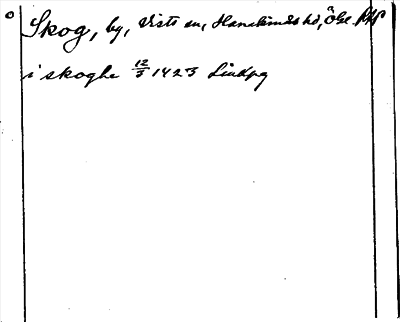 Skog, by, Vists sn, Hanekinds hd, Ögl.
i skoghe 12/3 1423 Linkpg